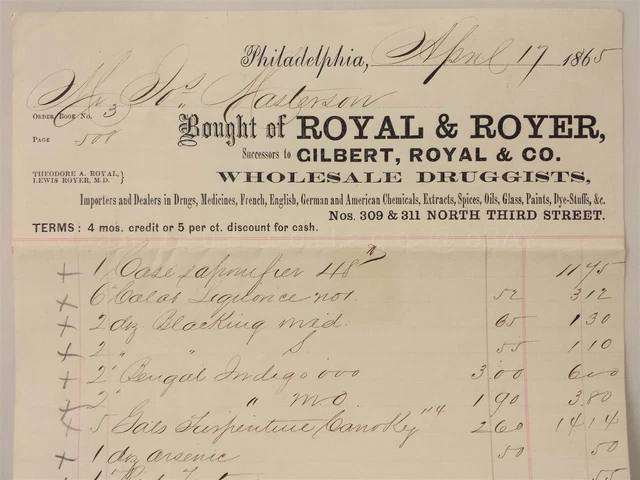 Philadelphia, April 17 1865
Mr Jos. Masterson
ORDER BOOK NO. 3
PAGE 500
Bought of ROYAL & ROYER,
Successors to GILBERT, ROYAL & CO.
THEODORE A. ROYAL,
LEWIS ROYER, M.D.
WHOLESALE DRUGGISTS,
Importers and Dealers in Drugs, Medicines, French, English, German and American Chemicals, Extracts, Spices, Oils, Glass, Paints, Dye-Stuffs, &c.
Nos. 309 & 311 NORTH THIRD STREET.
TERMS: 4 mos. credit or 5 per ct. discount for cash.
+ 1 Case saponifier 48 11 75
+ 6 Calab Liquorice no1. 52 3 12
+ 2 doz Blacking mid. 65 1 30
+ 2 " " S 55 1 10
+ 2 Bengal Indigo 000 3 00 6 00
+ 2 " " M.O. 1 90 3.80
+ 5 Gals Turpentine 2 60 14 14
+ 1 doz arsenic 50 50
55